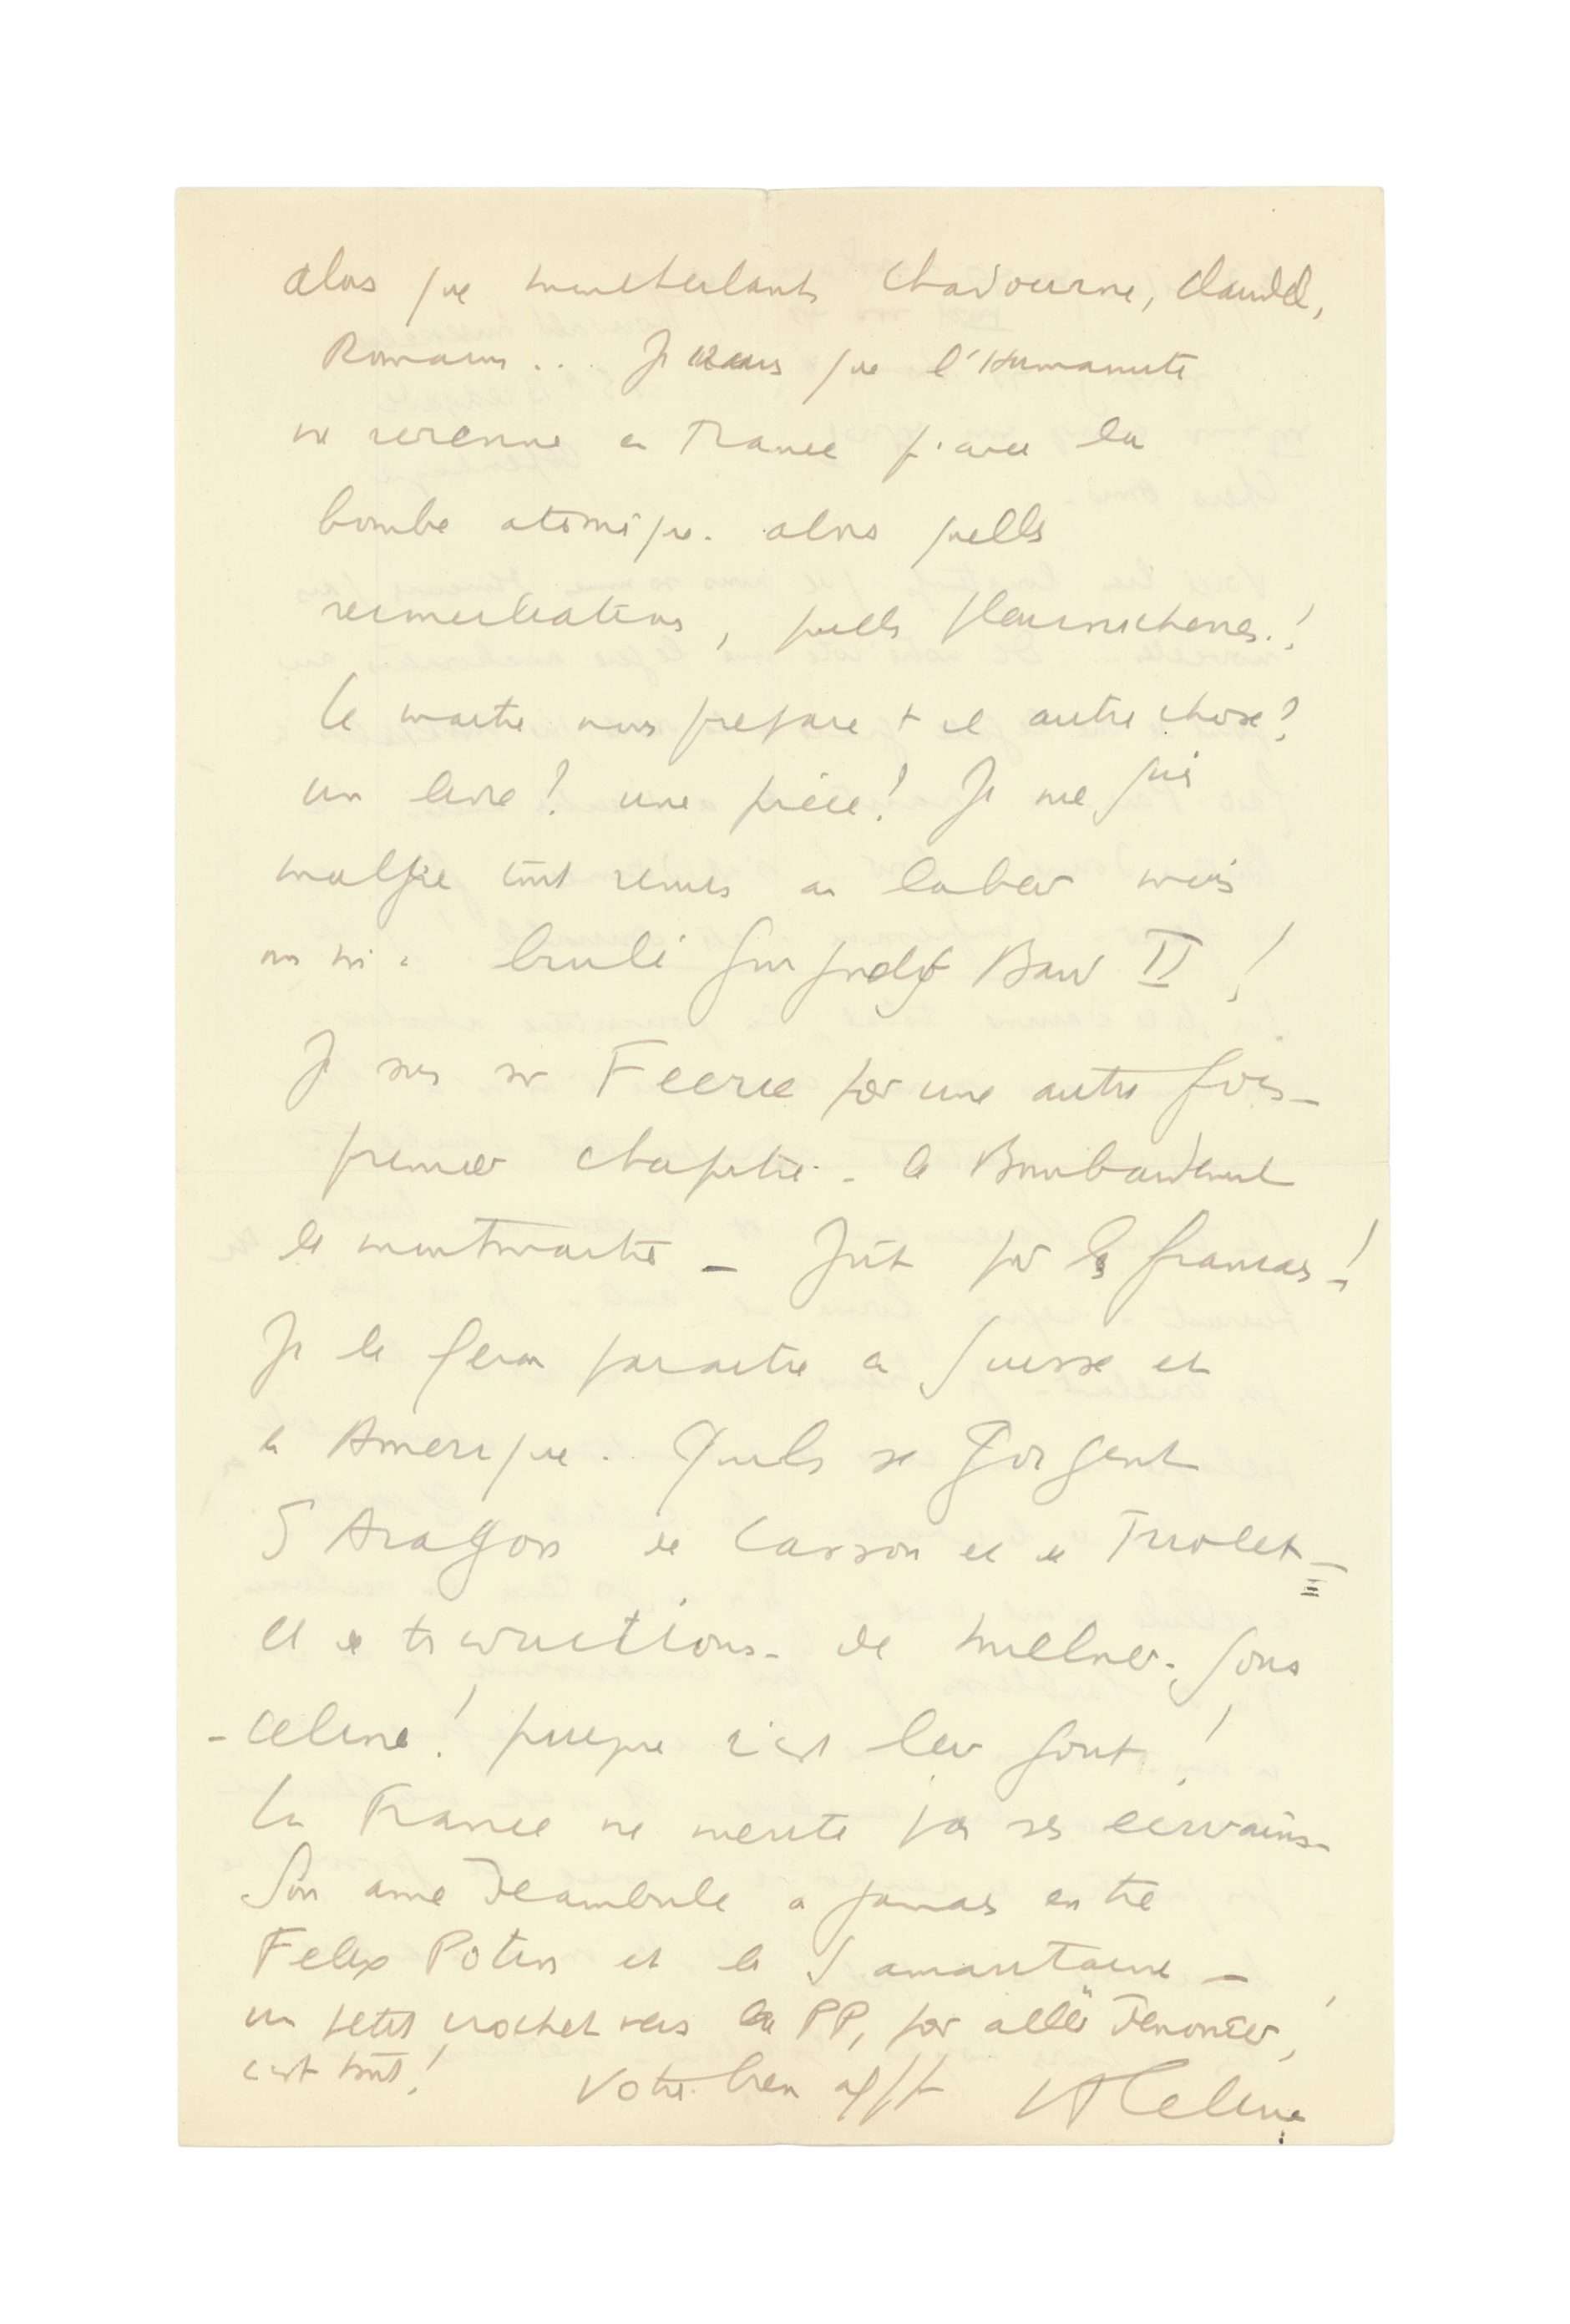 alors que Montherlant, Chadourne, Claudel,
Romains... Je crains que l'Humanité
ne revienne en France qu'avec la
bombe atomique. alors quelles
, quelles pleurnicheries!
Le maitre nous prepare t il autre chose?
un livre? une pièce! Je me suis
malgré tout remis au labeur mais
on m'a brulé Guignol's Band II!
Je suis sur Feerie pour une autre fois -
premier chapitre - le Bombardement
de Montmartre - pour les français -!
Je le ferai paraitre en Suisse et
en Amerique. Qu'ils se gorgent
d'Aragon de Cassou et de Triolet -
et de traductions - de Miller - sous
- Celine! puisque c'est leur gout!
La France ne merite pas ses ecrivains -
Son ame deambule a jamais entre
Felix Potin et la Samaritaine -
un petit crochet vers la PP, pour aller denoncer,
c'est tout! Votre bien afft LF Celine